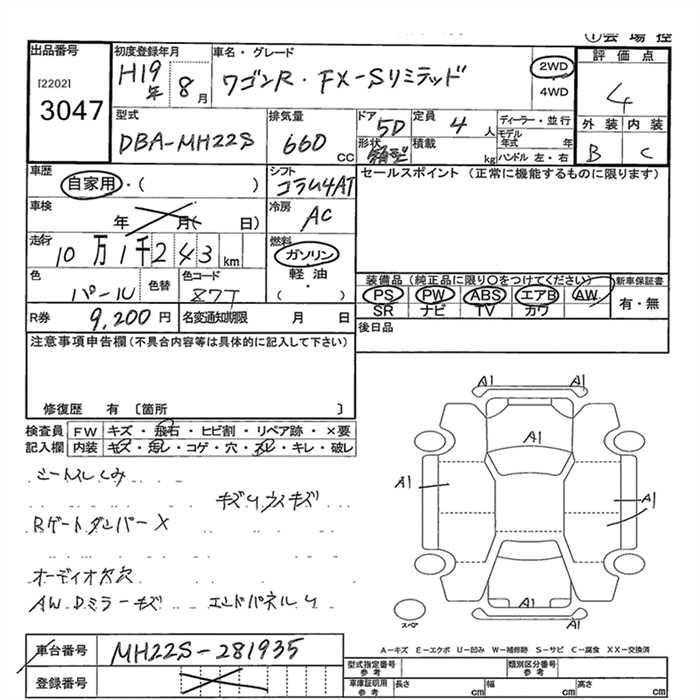 ①会場控
出品番号 初度登録年月 車名・グレード 評価点
[2202] H19年 8月 ワゴンR・FX-Sリミテッド 2WD 4
3047 4WD
型式 排気量 ドア 5D 定員 4人 ディーラー・並行 外装 内装
DBA-MH22S 660 CC 形状 箱型 積載 kg モデル年式 年 B C
ハンドル 左・右
車歴 シフト セールスポイント (正常に機能するものに限ります)
自家用・( ) コラム4AT
車検 年 月( 日) 冷房 AC
走行 10万1千243km 燃料 ガソリン
軽油
(・)
色 パール 色替 色コード 87T
装備品 (純正品に限り○をつけてください) 新車保証書
PS PW ABS エアB AW 有・無
SR ナビ TV カワ
R券 9,200円 名変通知期限 月 日 後日品
注意事項申告欄(不具合内容等は具体的に記入して下さい)
修復歴 有 〔箇所 〕
検査員 FW キズ・飛石・ヒビ割・リペア跡・×要
記入欄 内装 キズ・汚レ・コゲ・穴・スレ・キレ・破レ
シートスレ
キズU ウスキズ
Rゲートダンパー×
オーディオ欠穴
AW Dミラーキズ エンドパネルU
A1 A1
A1
A1 A1
A1
A1 A1
スペア
A-キズ E-エクボ U-凹み W-補修跡 S-サビ C-腐食 XX-交換済
車台番号 MH22S-281935
登録番号
型式指定番号 参考 類別区分番号 参考
車庫証明用 参考 長さ cm 幅 cm 高さ cm